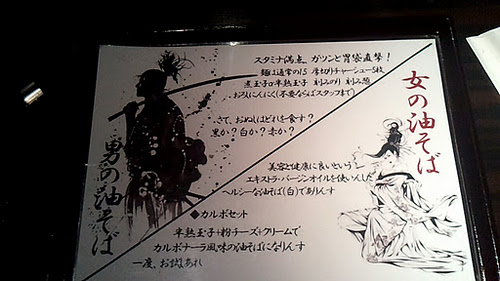 スタミナ満点、ガツンと胃袋直撃!
麺は通常の1.5 厚切りチャーシュー5枚
煮玉子or半熟玉子 刻みのり 刻み葱
おろしにんにく(不要ならばスタッフまで)
さて、おぬしはどれを食す?
黒か?白か?赤か?
男の油そば
女の油そば
美容と健康に良いという
エキストラ・バージンオイルを使いんした
ヘルシーな油そば(白)でありんす
◆カルボセット
半熟玉子+粉チーズ+クリームで
カルボナーラ風味の油そばになりんす
一度、お試しあれ